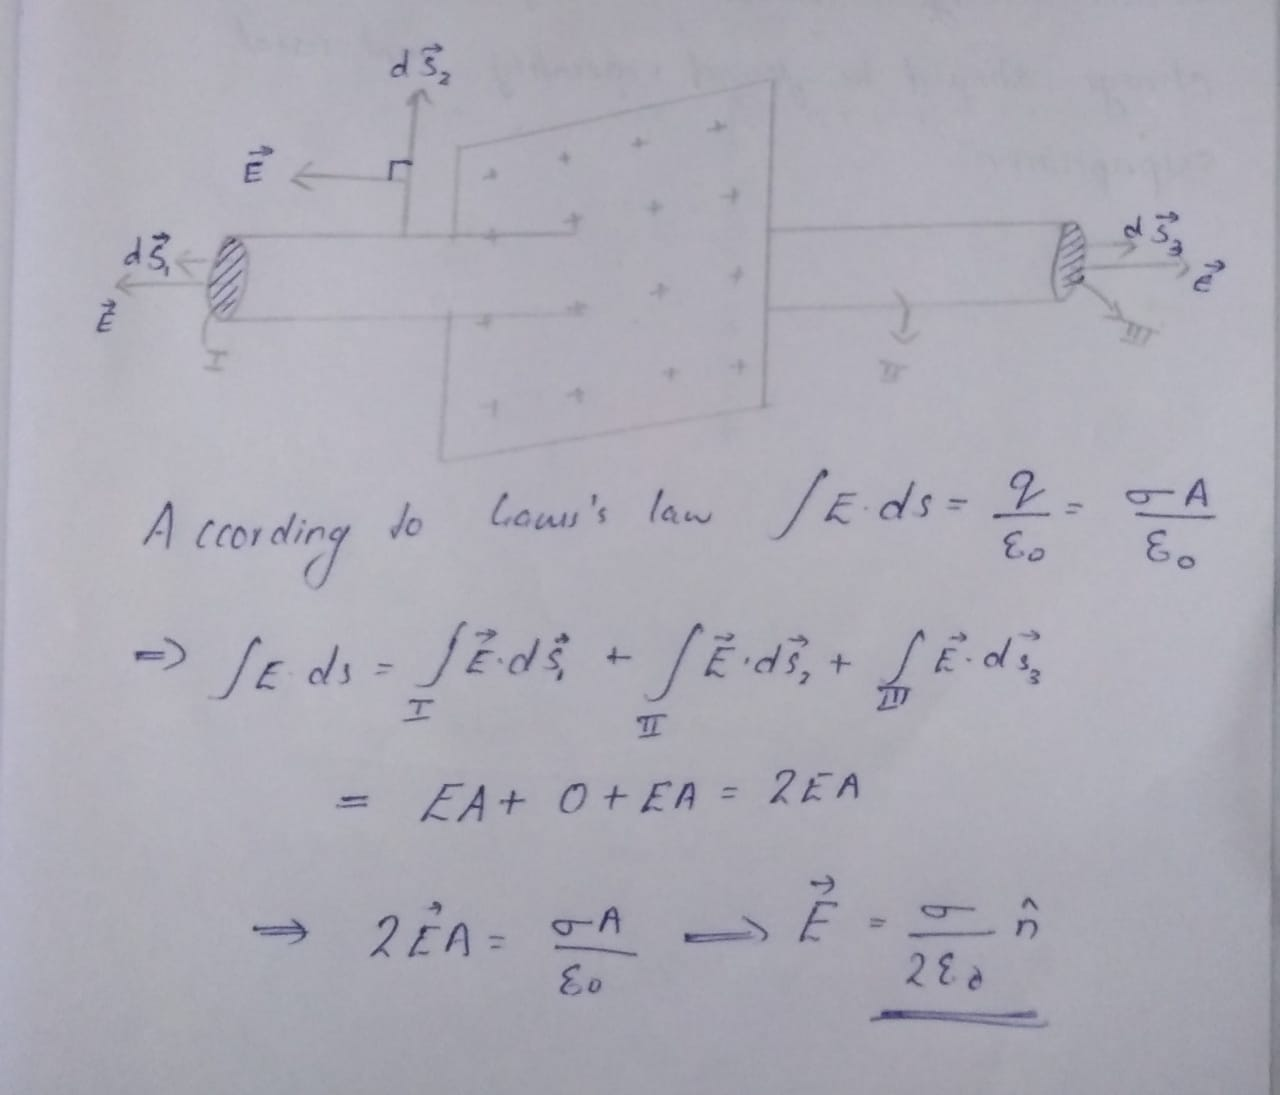 dS⃗₂
E⃗
dS⃗₁
E⃗
I
dS⃗₃
E⃗
III
II
According to Gauss's law ∫E.ds = q/ε₀ = σA/ε₀
=> ∫E ds = ∫_I E⃗.ds⃗₁ + ∫_II E⃗.ds⃗₂ + ∫_III E⃗.ds⃗₃
= EA + 0 + EA = 2EA
=> 2E⃗A = σA/ε₀ => E⃗ = σ/2ε₀ n̂